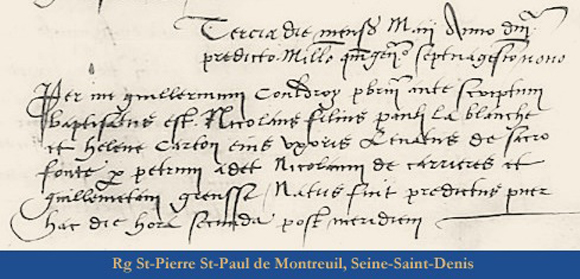 Tercia die mensis Maii Anno dni
predicto Millo quingeno septuagesimo nono
Per me guillermum pbrum ante scriptum
baptisatus est Nicolaus filius pauli La blanche
et Helene Carton eius uxoris Levatus de sacro
fonte p petrum adet Nicolaum de carrieres et
guillemetam greusse Natus fuit predictus puer
hac die hora secunda post meridiem
Rg St-Pierre St-Paul de Montreuil, Seine-Saint-Denis